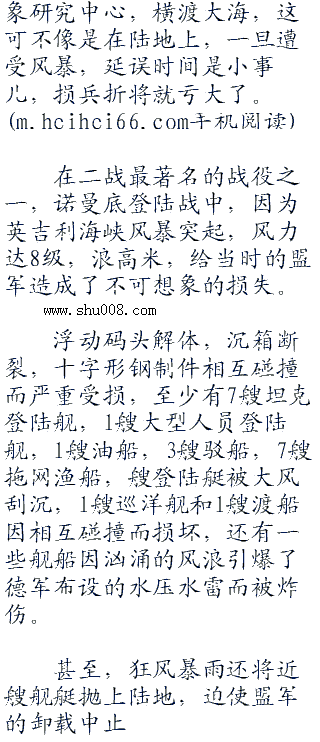 象研究中心，横渡大海，这
可不像是在陆地上，一旦遭
受风暴，延误时间是小事
儿，损兵折将就亏大了。
(m.hcihci66.com手机阅读)
在二战最著名的战役之
一，诺曼底登陆战中，因为
英吉利海峡风暴突起，风力
达8级，浪高米，给当时的盟
军造成了不可想象的损失。
www.shu008.com
浮动码头解体，沉箱断
裂，十字形钢制件相互碰撞
而严重受损，至少有7艘坦克
登陆舰，1艘大型人员登陆
舰，1艘油船，3艘驳船，7艘
拖网渔船，艘登陆艇被大风
刮沉，1艘巡洋舰和1艘渡船
因相互碰撞而损坏，还有一
些舰船因汹涌的风浪引爆了
德军布设的水压水雷而被炸
伤。
甚至，狂风暴雨还将近
艘舰艇抛上陆地，迫使盟军
的卸载中止